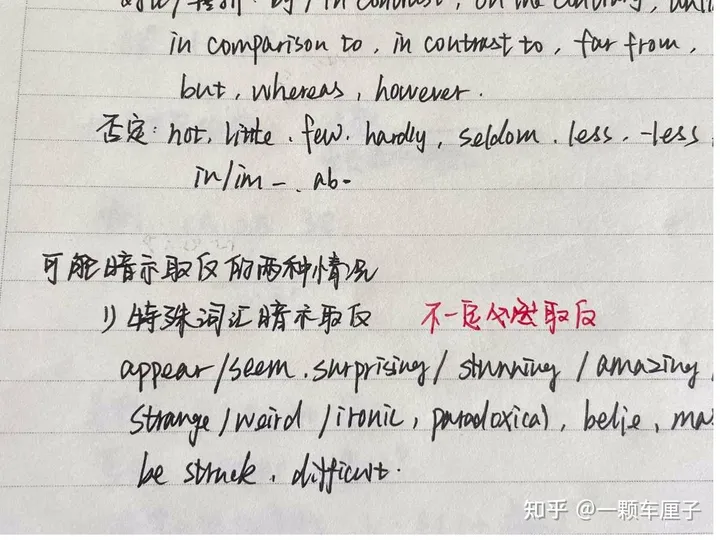 by / in contrast, on the contrary,
in comparison to, in contrast to, far from,
but, whereas, however.
否定: not, little, few, hardly, seldom, less, -less
in/im-, ab-
可能暗示取反的两种情况
1) 特殊词汇暗示取反 不一定会取反
appear/seem, surprising/ stunning / amazing,
strange/weird /ironic, paradoxical, belie,
be struck, difficult.
知乎 @一颗车厘子